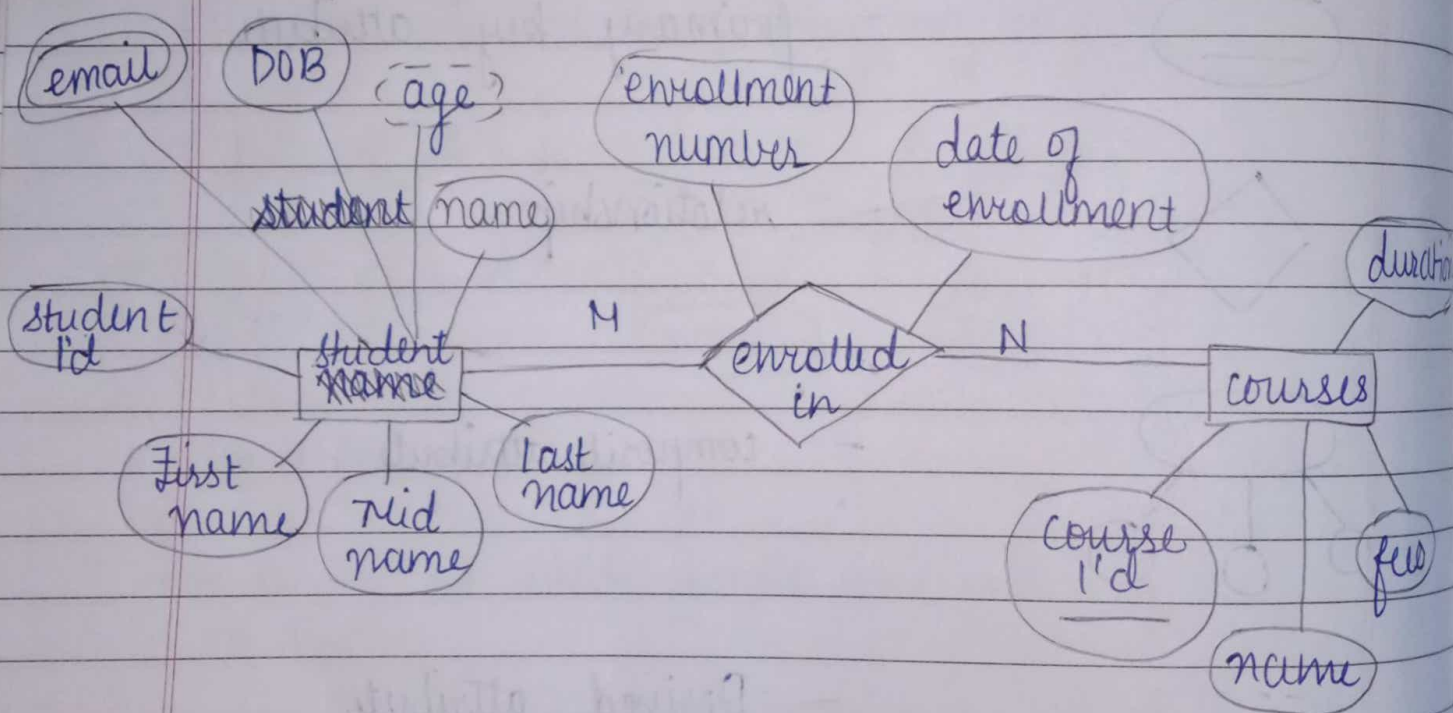 email
DOB
age
enrollment
number
date of
enrollment
name
student
I'd
student
M
enrolled
in
N
courses
First
name
Mid
name
Last
name
course
I'd
name